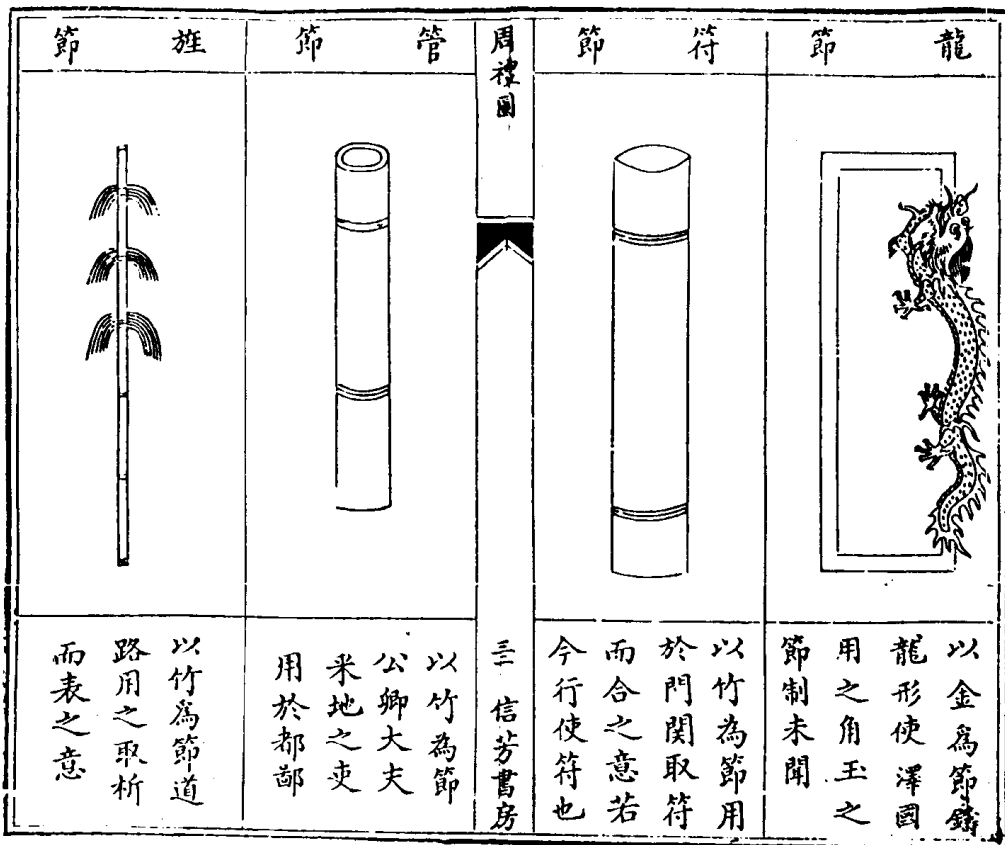 龍節
以金爲節鑄
龍形使澤國
用之角玉之
節制未聞
符節
以竹為節用
於門関取符
而合之意若
今行使符也
周禮圖
三 信芳書房
管節
以竹為節
公卿大夫
采地之吏
用於都鄙
旌節
以竹爲節道
路用之取析
而表之意